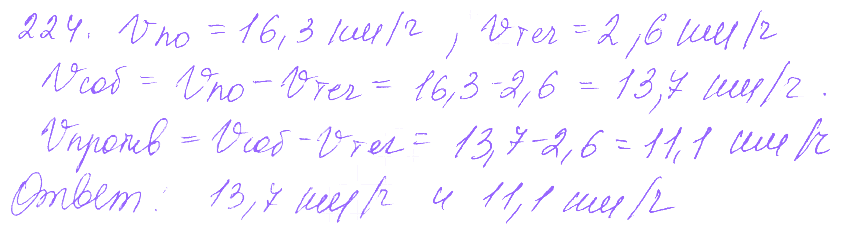 224. Vпо = 16,3 км/ч, Vтеч = 2,6 км/ч
Vсоб = Vпо - Vтеч = 16,3-2,6 = 13,7 км/ч.
Vпротив = Vсоб - Vтеч = 13,7-2,6 = 11,1 км/ч
Ответ: 13,7 км/ч и 11,1 км/ч